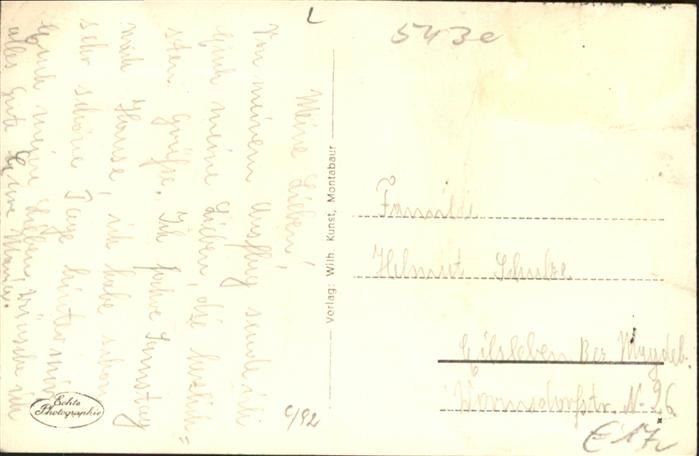 L
543e
Meine Lieben!
Von meinem Ausflug sende ich
Euch meine Lieben, die herzlich=
sten Grüße. Ich fahre Samstag
nach Hause, ich habe schon
sehr schöne Tage hinter mir
Euch meine Lieben wünsche ich
alles Gute Eure Mama.
Verlag: Wilh. Kunst, Montabaur
Familie
Helmut Schulze
Eilsleben Bez Magdeb.
Str. N-26
Echte
Photographie